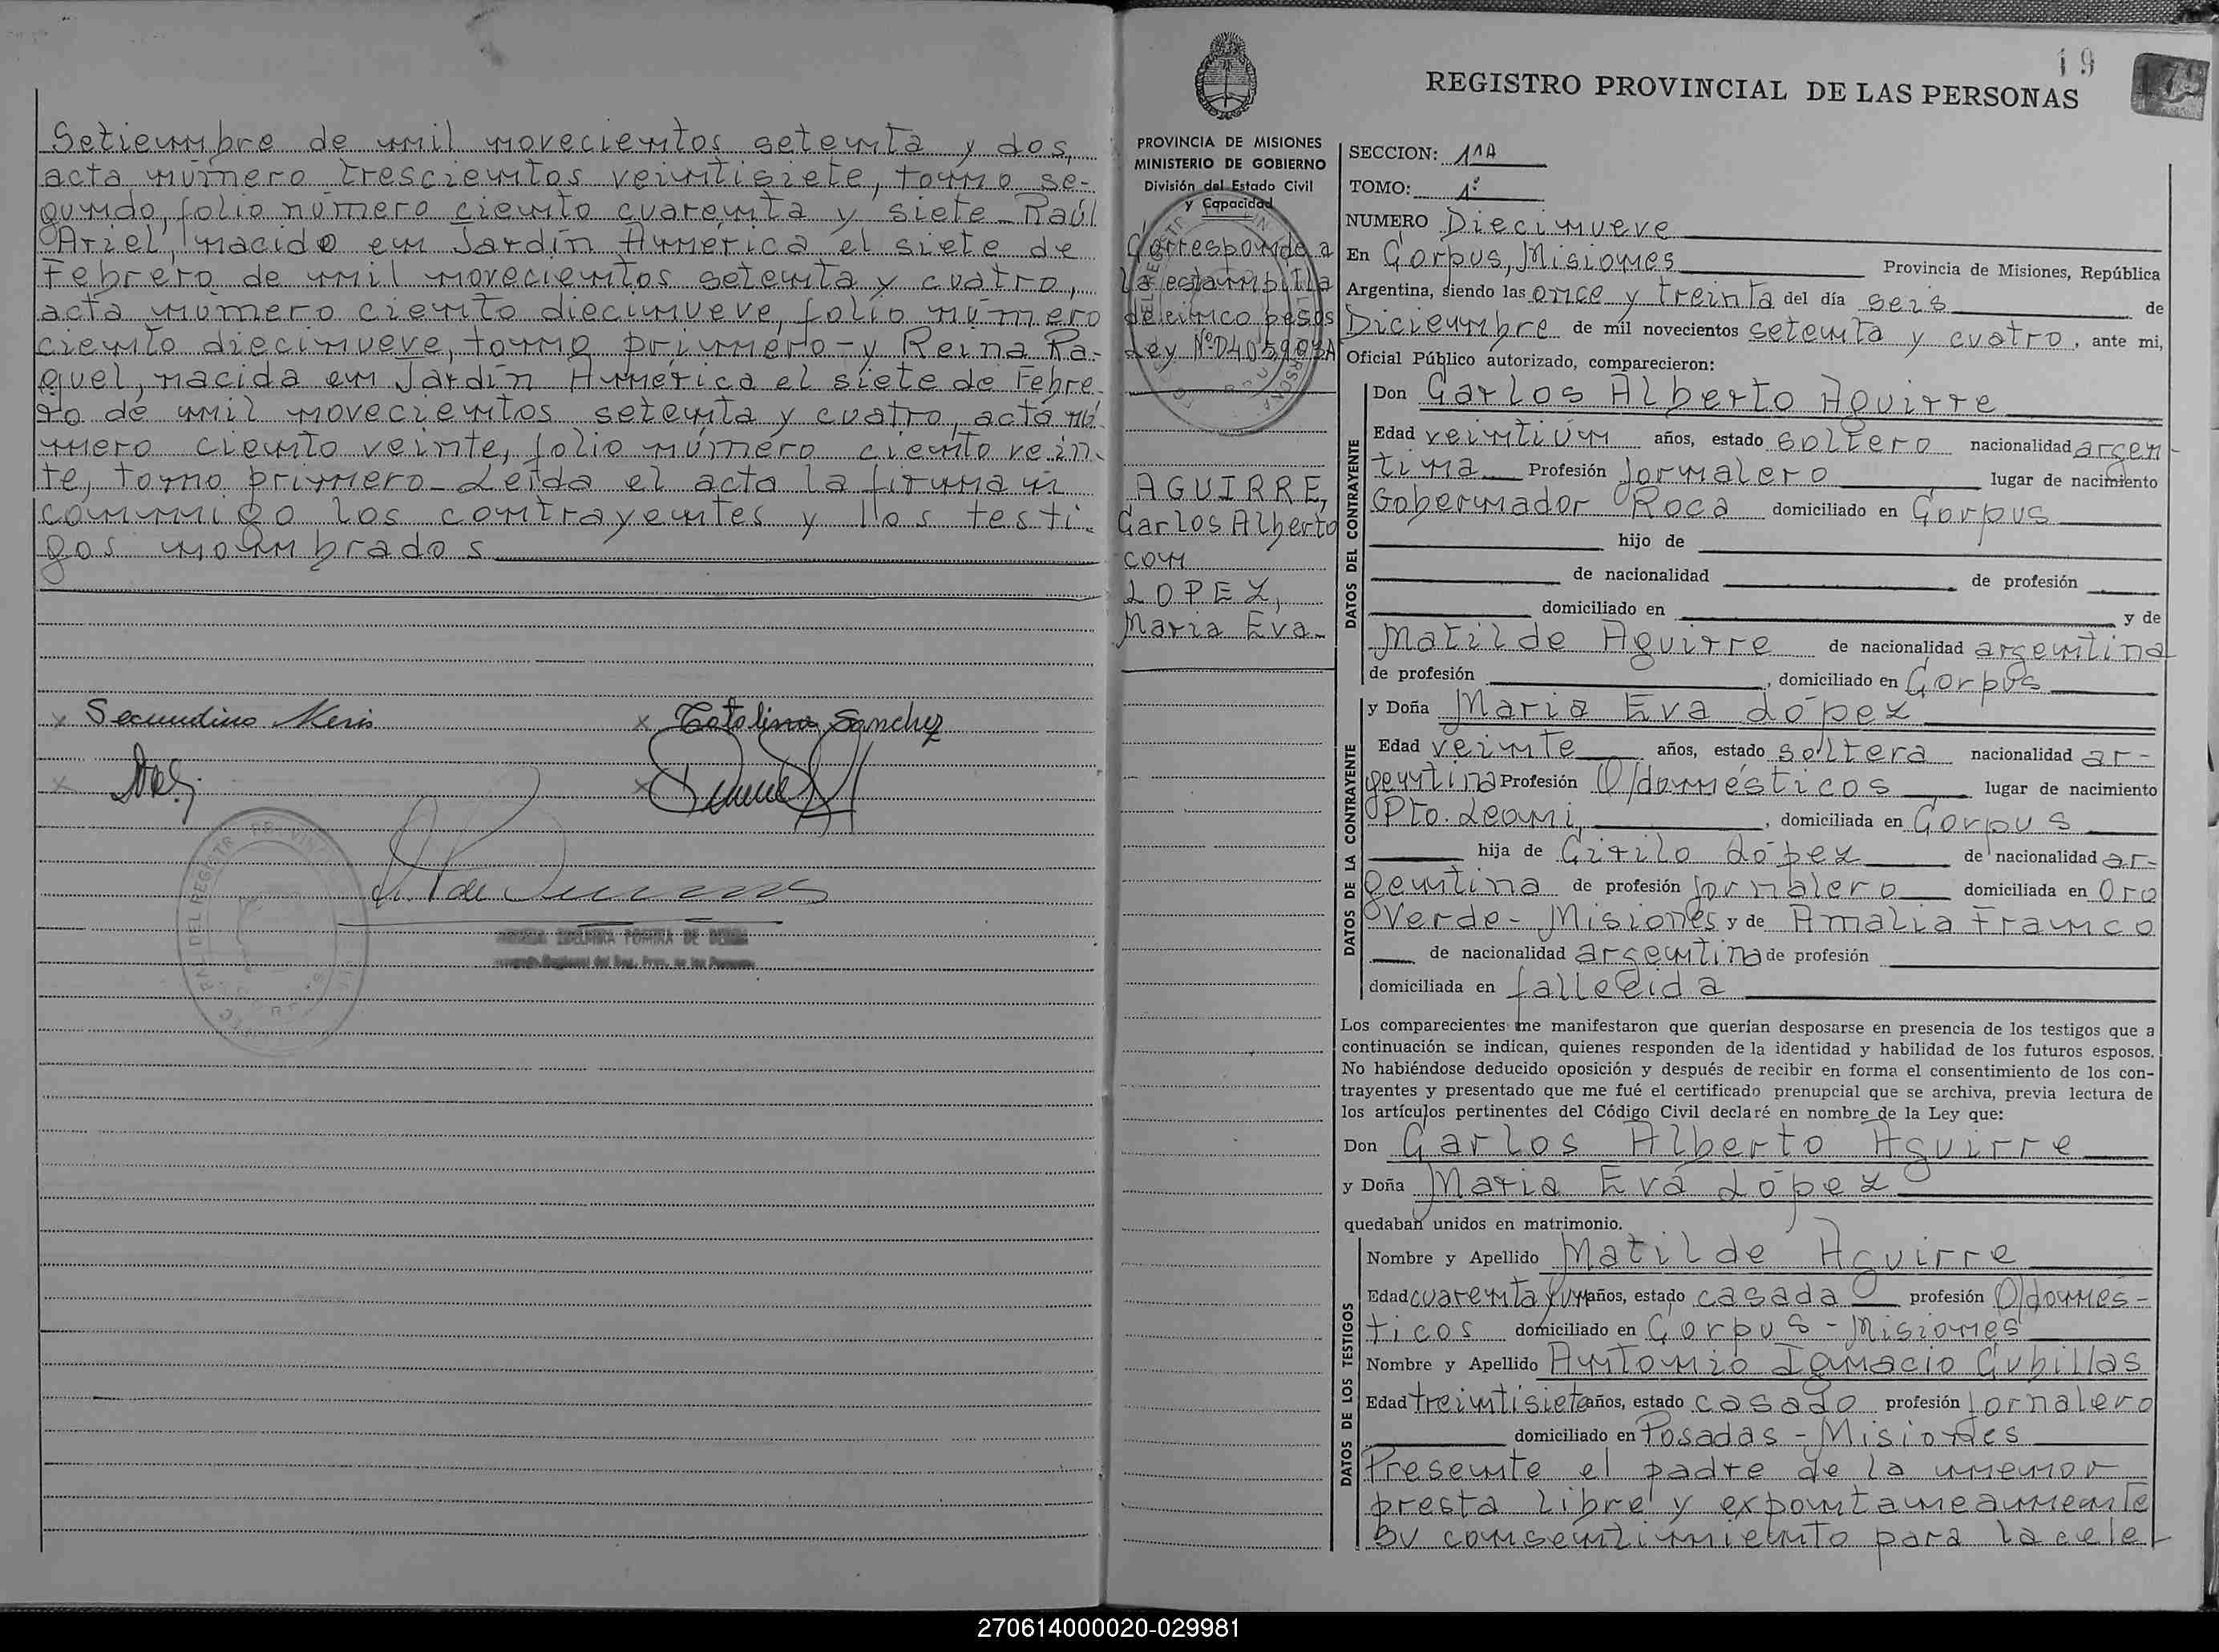 Setiembre de mil novecientos setenta y dos,
acta número trescientos veintisiete, tomo se-
gundo, folio número ciento cuarenta y siete - Raúl
Ariel, nacido en Jardín América el siete de
Febrero de mil novecientos setenta y cuatro,
acta número ciento diecinueve, folio número
ciento diecinueve, tomo primero - y Reina Ra-
quel, nacida en Jardín América el siete de Febre-
ro de mil novecientos setenta y cuatro, acta nú-
mero ciento veinte, folio número ciento vein-
te, tomo primero - Leída el acta la firman
conmigo los contrayentes y los testi-
gos nombrados
x Secundino Neris x Catalina Sanchez
19
REGISTRO PROVINCIAL DE LAS PERSONAS
PROVINCIA DE MISIONES
MINISTERIO DE GOBIERNO
División del Estado Civil
y Capacidad
Corresponde a
la estampilla
de cinco pesos
Ley
AGUIRRE,
Carlos Alberto
con
LOPEZ,
Maria Eva-
SECCION: 11A
TOMO: 1º
NUMERO Diecinueve
En Corpus, Misiones Provincia de Misiones, República
Argentina, siendo las once y treinta del día seis de
Diciembre de mil novecientos setenta y cuatro, ante mi,
Oficial Público autorizado, comparecieron:
DATOS DEL CONTRAYENTE
Don Carlos Alberto Aguirre
Edad veintiún años, estado soltero nacionalidad argen-
tina Profesión Jornalero lugar de nacimiento
Gobernador Roca domiciliado en Corpus
hijo de
de nacionalidad de profesión
domiciliado en y de
Matilde Aguirre de nacionalidad argentina
de profesión , domiciliado en Corpus
DATOS DE LA CONTRAYENTE
y Doña Maria Eva López
Edad veinte años, estado soltera nacionalidad ar-
gentina Profesión Q/domésticos lugar de nacimiento
Pto. Leoni, , domiciliada en Corpus
hija de Cirilo López de nacionalidad ar-
gentina de profesión Jornalero domiciliada en Oro
Verde - Misiones y de Amalia Franco
de nacionalidad argentina de profesión
domiciliada en fallecida
Los comparecientes me manifestaron que querían desposarse en presencia de los testigos que a
continuación se indican, quienes responden de la identidad y habilidad de los futuros esposos.
No habiéndose deducido oposición y después de recibir en forma el consentimiento de los con-
trayentes y presentado que me fué el certificado prenupcial que se archiva, previa lectura de
los artículos pertinentes del Código Civil declaré en nombre de la Ley que:
Don Carlos Alberto Aguirre
y Doña Maria Eva López
quedaban unidos en matrimonio.
DATOS DE LOS TESTIGOS
Nombre y Apellido Matilde Aguirre
Edad cuarenta y un años, estado casada profesión Q/domés-
ticos domiciliado en Corpus - Misiones
Nombre y Apellido Antonio Ignacio Cubillas
Edad treintisiete años, estado casado profesión Jornalero
domiciliado en Posadas - Misiones
Presente el padre de la menor
presta libre y expontaneamente
su consentimiento para la cele-
270614000020-029981